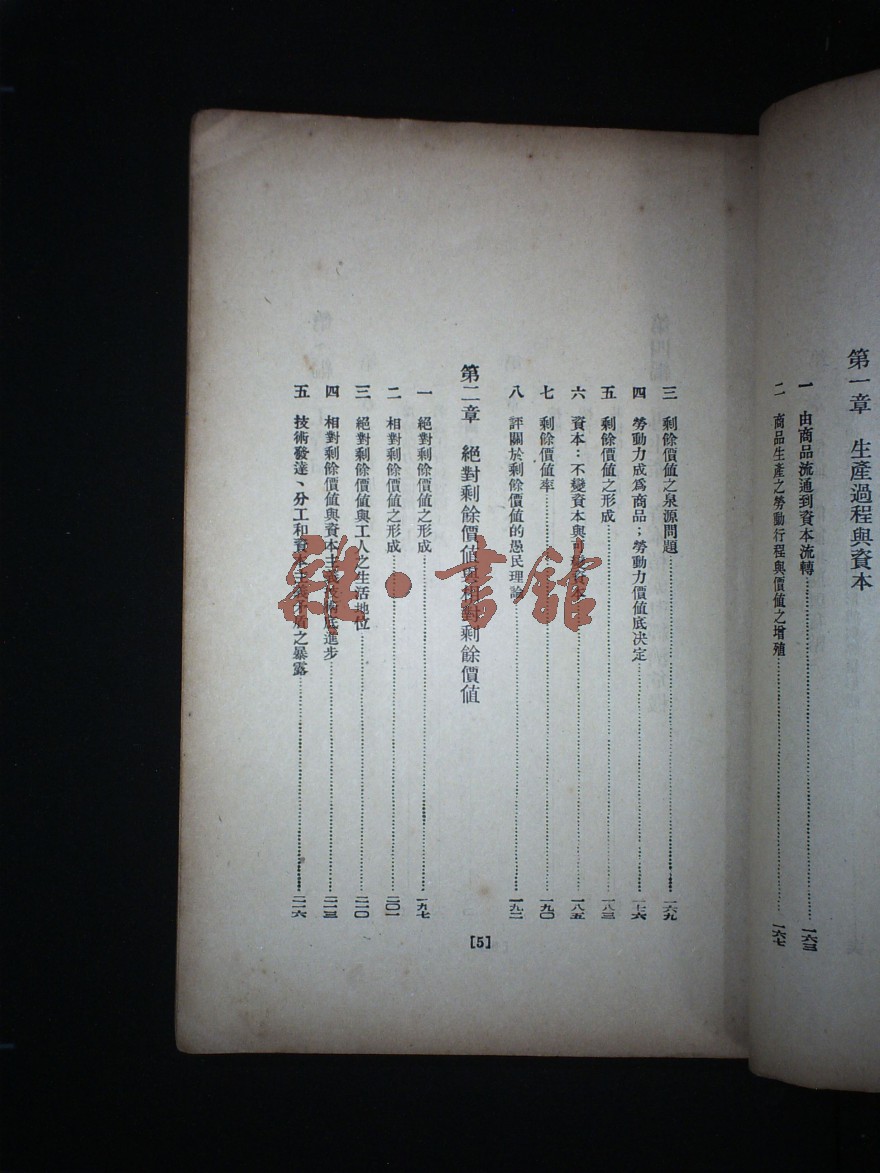 第一章 生產過程與資本
一 由商品流通到資本流轉……一六三
二 商品生產之勞動行程與價值之增殖……一六七
三 剩餘價值之泉源問題……一六九
四 勞動力成爲商品；勞動力價值底決定……一七六
五 剩餘價值之形成……一八三
六 資本：不變資本與可變資本……一八五
七 剩餘價值率……一九〇
八 評關於剩餘價值的愚民理論……一九二
第二章 絕對剩餘價值與相對剩餘價值
一 絕對剩餘價值之形成……一九七
二 相對剩餘價值之形成……二〇一
三 絕對剩餘價值與工人之生活地位……二一〇
四 相對剩餘價值與資本主義技術底進步……二一三
五 技術發達、分工和資本主義矛盾之暴露……二一六
[5]
雜·書館